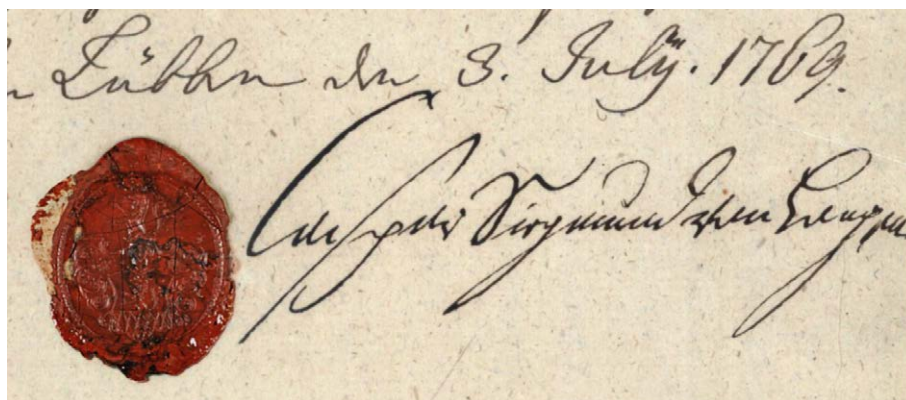 Lübben den 3. Julÿ. 1769.
Caspar Siegmund von